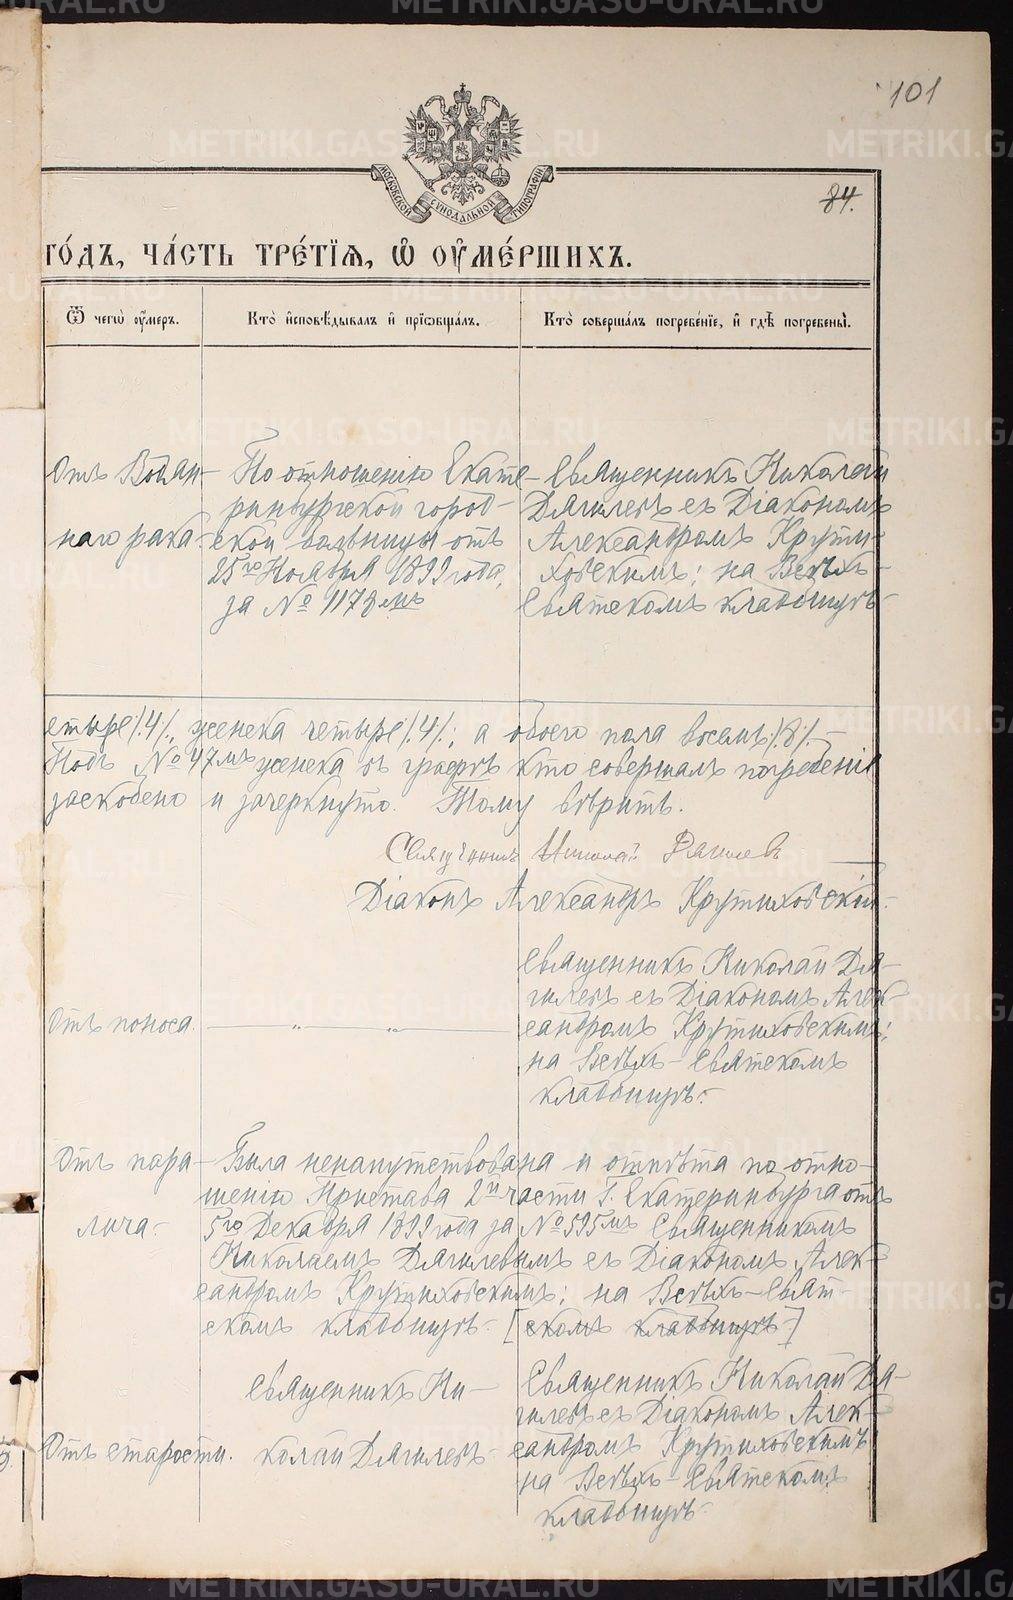 101
84.
МОСКОВСКОЙ СѴНОДАЛЬНОЙ ТИПОГРАФІИ
го́дъ, ча́сть тре́тїѧ, ѽ оу҆ме́ршихъ.
Ѿ чегѡ̀ оу҆́меръ.
Кто̀ и҆сповѣ́дывалъ и҆ прїѡбща́лъ.
Кто̀ соверша́лъ погребе́нїе, и҆ гдѣ̀ погребены̀.
Отъ Водян-
наго рака.
По отношенію Екате-
ринбургской город-
ской больницы отъ
25го Ноября 1899 года,
за № 1178мъ
Священникъ Николай
Дягилевъ съ Діакономъ
Александромъ Крути-
ховскимъ; на Всѣхъ-
Святскомъ кладбищѣ-
етыре /.4/., женска четыре /.4/.; а обоего пола восемь /.8/.-
Подъ № 47мъ женска въ графѣ кто совершалъ погребеніе
заскоблено и зачеркнуто. Тому вѣрить.
Священникъ Николай Дягилевъ
Діаконъ Александръ Крутиховскій.
Отъ поноса.
— „ — „ —
Священникъ Николай Дя-
гилевъ съ Діакономъ Алек-
сандромъ Крутиховскимъ;
на Всѣхъ-Святскомъ
кладбищѣ.-
Отъ пара-
лича.-
Была ненапутствована и отпѣта по отно-
шенію Пристава 2й части Г. Екатеринбурга отъ
5го Декабря 1899 года за № 595мъ Священникомъ
Николаемъ Дягилевымъ съ Діакономъ Алек-
сандромъ Крутиховскимъ; на Всѣхъ-Свят-
скомъ кладбищѣ.- [скомъ кладбищѣ-]
Отъ старости.
Священникъ Ни-
колай Дягилевъ-
Священникъ Николай Дя-
гилевъ съ Діакономъ Алек-
сандромъ Крутиховскимъ
на Всѣхъ-Святскомъ
кладбищѣ.-
METRIKI.GASO-URAL.RU